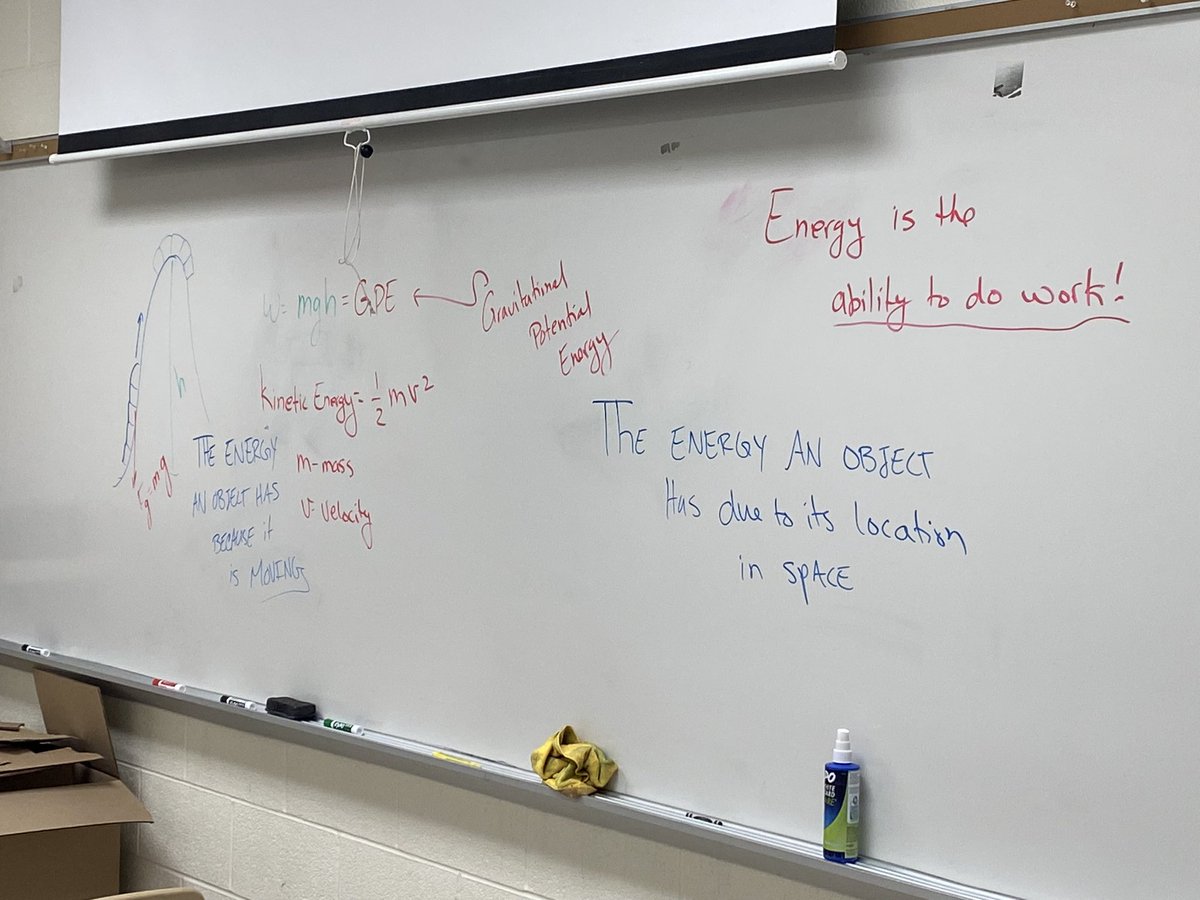 Energy is the
ability to do work!
w= mgh = GPE
Gravitational
Potential
Energy
h
Kinetic Energy = 1/2 mv²
m-mass
v= velocity
Fg=mg
THE ENERGY
AN OBJECT HAS
BECAUSE it
is MOVING
The ENERGY AN OBJECT
Has due to its location
in SPACE